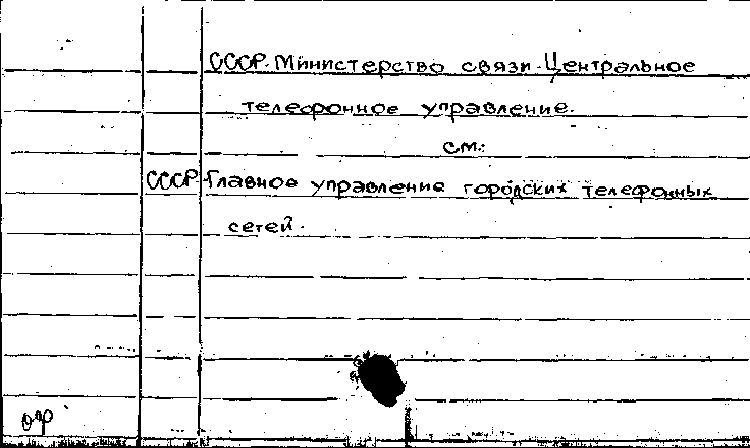 СССР. Министерство связи. Центральное
телефонное управление.
см:
СССР. Главное управление городских телефонных
сетей.